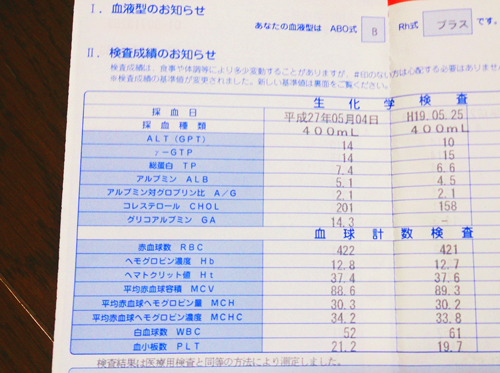 Ⅰ．血液型のお知らせ
あなたの血液型は ABO式 B Rh式 プラス です。
Ⅱ．検査成績のお知らせ
検査成績は、食事や体調等により多少変動することがありますが、#印のない方は心配する必要はありません
※検査成績の基準値が変更されました。新しい基準値は裏面をご覧ください。
生化学検査
採血日 平成27年05月04日 H19.05.25
採血種類 400mL 400mL
ALT(GPT) 14 10
γ-GTP 14 15
総蛋白 TP 7.4 6.6
アルブミン ALB 5.1 4.5
アルブミン対グロブリン比 A/G 2.1 2.1
コレステロール CHOL 201 158
グリコアルブミン GA 14.3 -
血球計数検査
赤血球数 RBC 422 421
ヘモグロビン濃度 Hb 12.8 12.7
ヘマトクリット値 Ht 37.4 37.6
平均赤血球容積 MCV 88.6 89.3
平均赤血球ヘモグロビン量 MCH 30.3 30.2
平均赤血球ヘモグロビン濃度 MCHC 34.2 33.8
白血球数 WBC 52 61
血小板数 PLT 21.2 19.7
検査結果は医療用検査と同等の方法により測定しました。